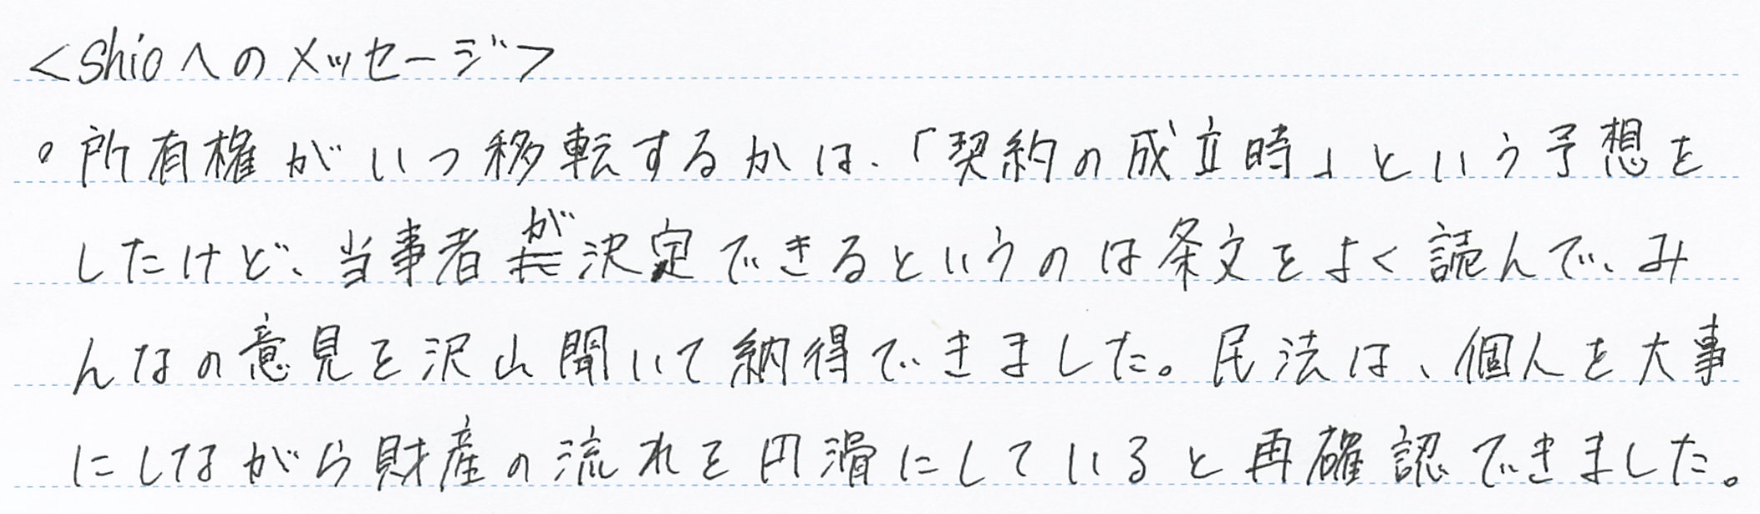 <Shioへのメッセージ>
◦所有権がいつ移転するかは、「契約の成立時」という予想を
したけど、当事者が決定できるというのは条文をよく読んで、み
んなの意見を沢山聞いて納得できました。民法は、個人を大事
にしながら財産の流れを円滑にしていると再確認できました。